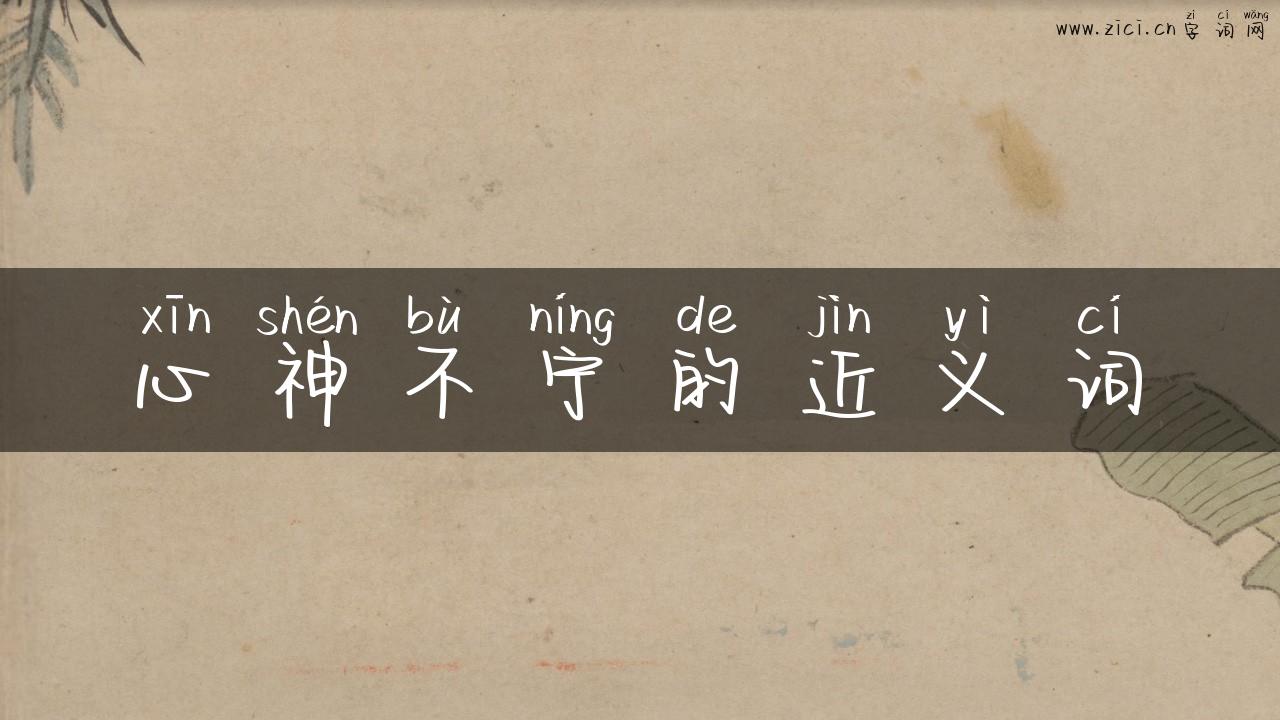 zì cí wǎng
www.zici.cn 字词网
xīn shén bù níng de jìn yì cí
心神不宁的近义词